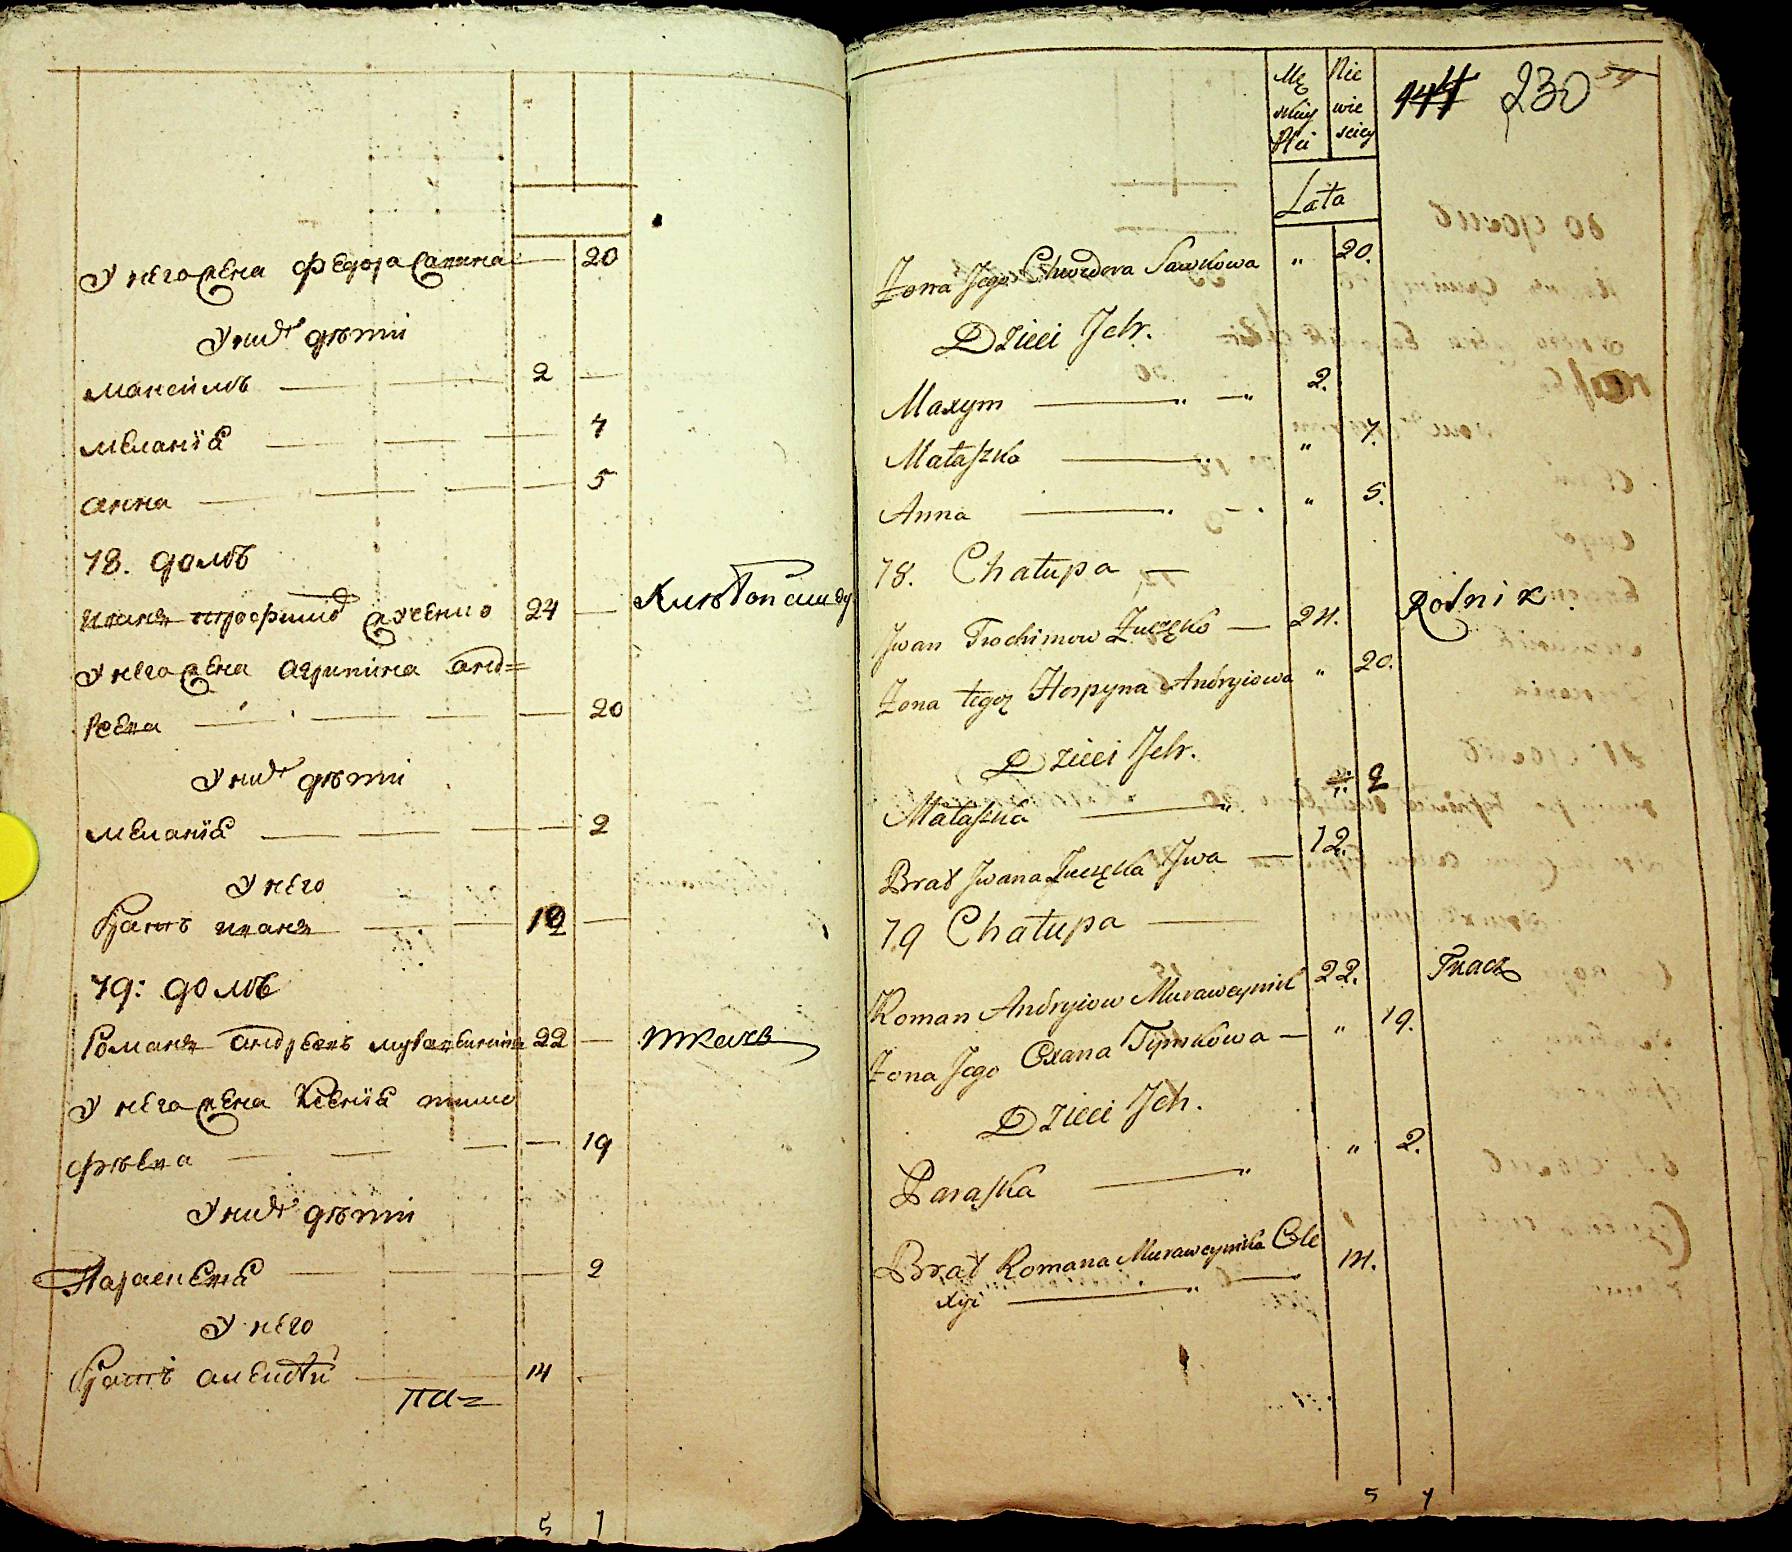 У него жена Федора Савина — 20
У них дѣти
Максимъ — 2 —
Меланія — 7
Анна — 5
78. домъ
Иванъ Трофимов 24 — Хлѣбопашец
У него жена Агрипина Анд=
реева — 20
У них дѣти
Меланія — 2
У него
братъ Иванъ — 12 —
79: домъ
Романъ Андреевъ 22 — ткачъ
У него жена Ксенія Тимо
фѣева — 19
У них дѣти
Параскевія — 2
У него
братъ Алексѣй — 14 -
5 7
Mę Nie
skiey wie
Płci sciey
144 230 59
Lata
Żona Jego Chwedora Sawkowa " 20.
Dzieci Jch.
Maxym — " — " 2.
Małaszka — " 7.
Anna — " 5.
78. Chałupa —
Jwan Trochimow Żuczęko — 24. Rolnik.
Żona tegoż Horpyna Andryiowa " 20.
Dzieci Jch.
Małaszka — " 2
Brat Jwana Żuczęka Jwa — 12.
79 Chałupa —
Roman Andryiow Muraweynik 22. Tkacz
Żona Jego Oxana Tymkowa — " 19.
Dzieci Jch.
Paraska — " " 2.
Brat Romana Murawcynika Ole 14.
xyi — "
5 7